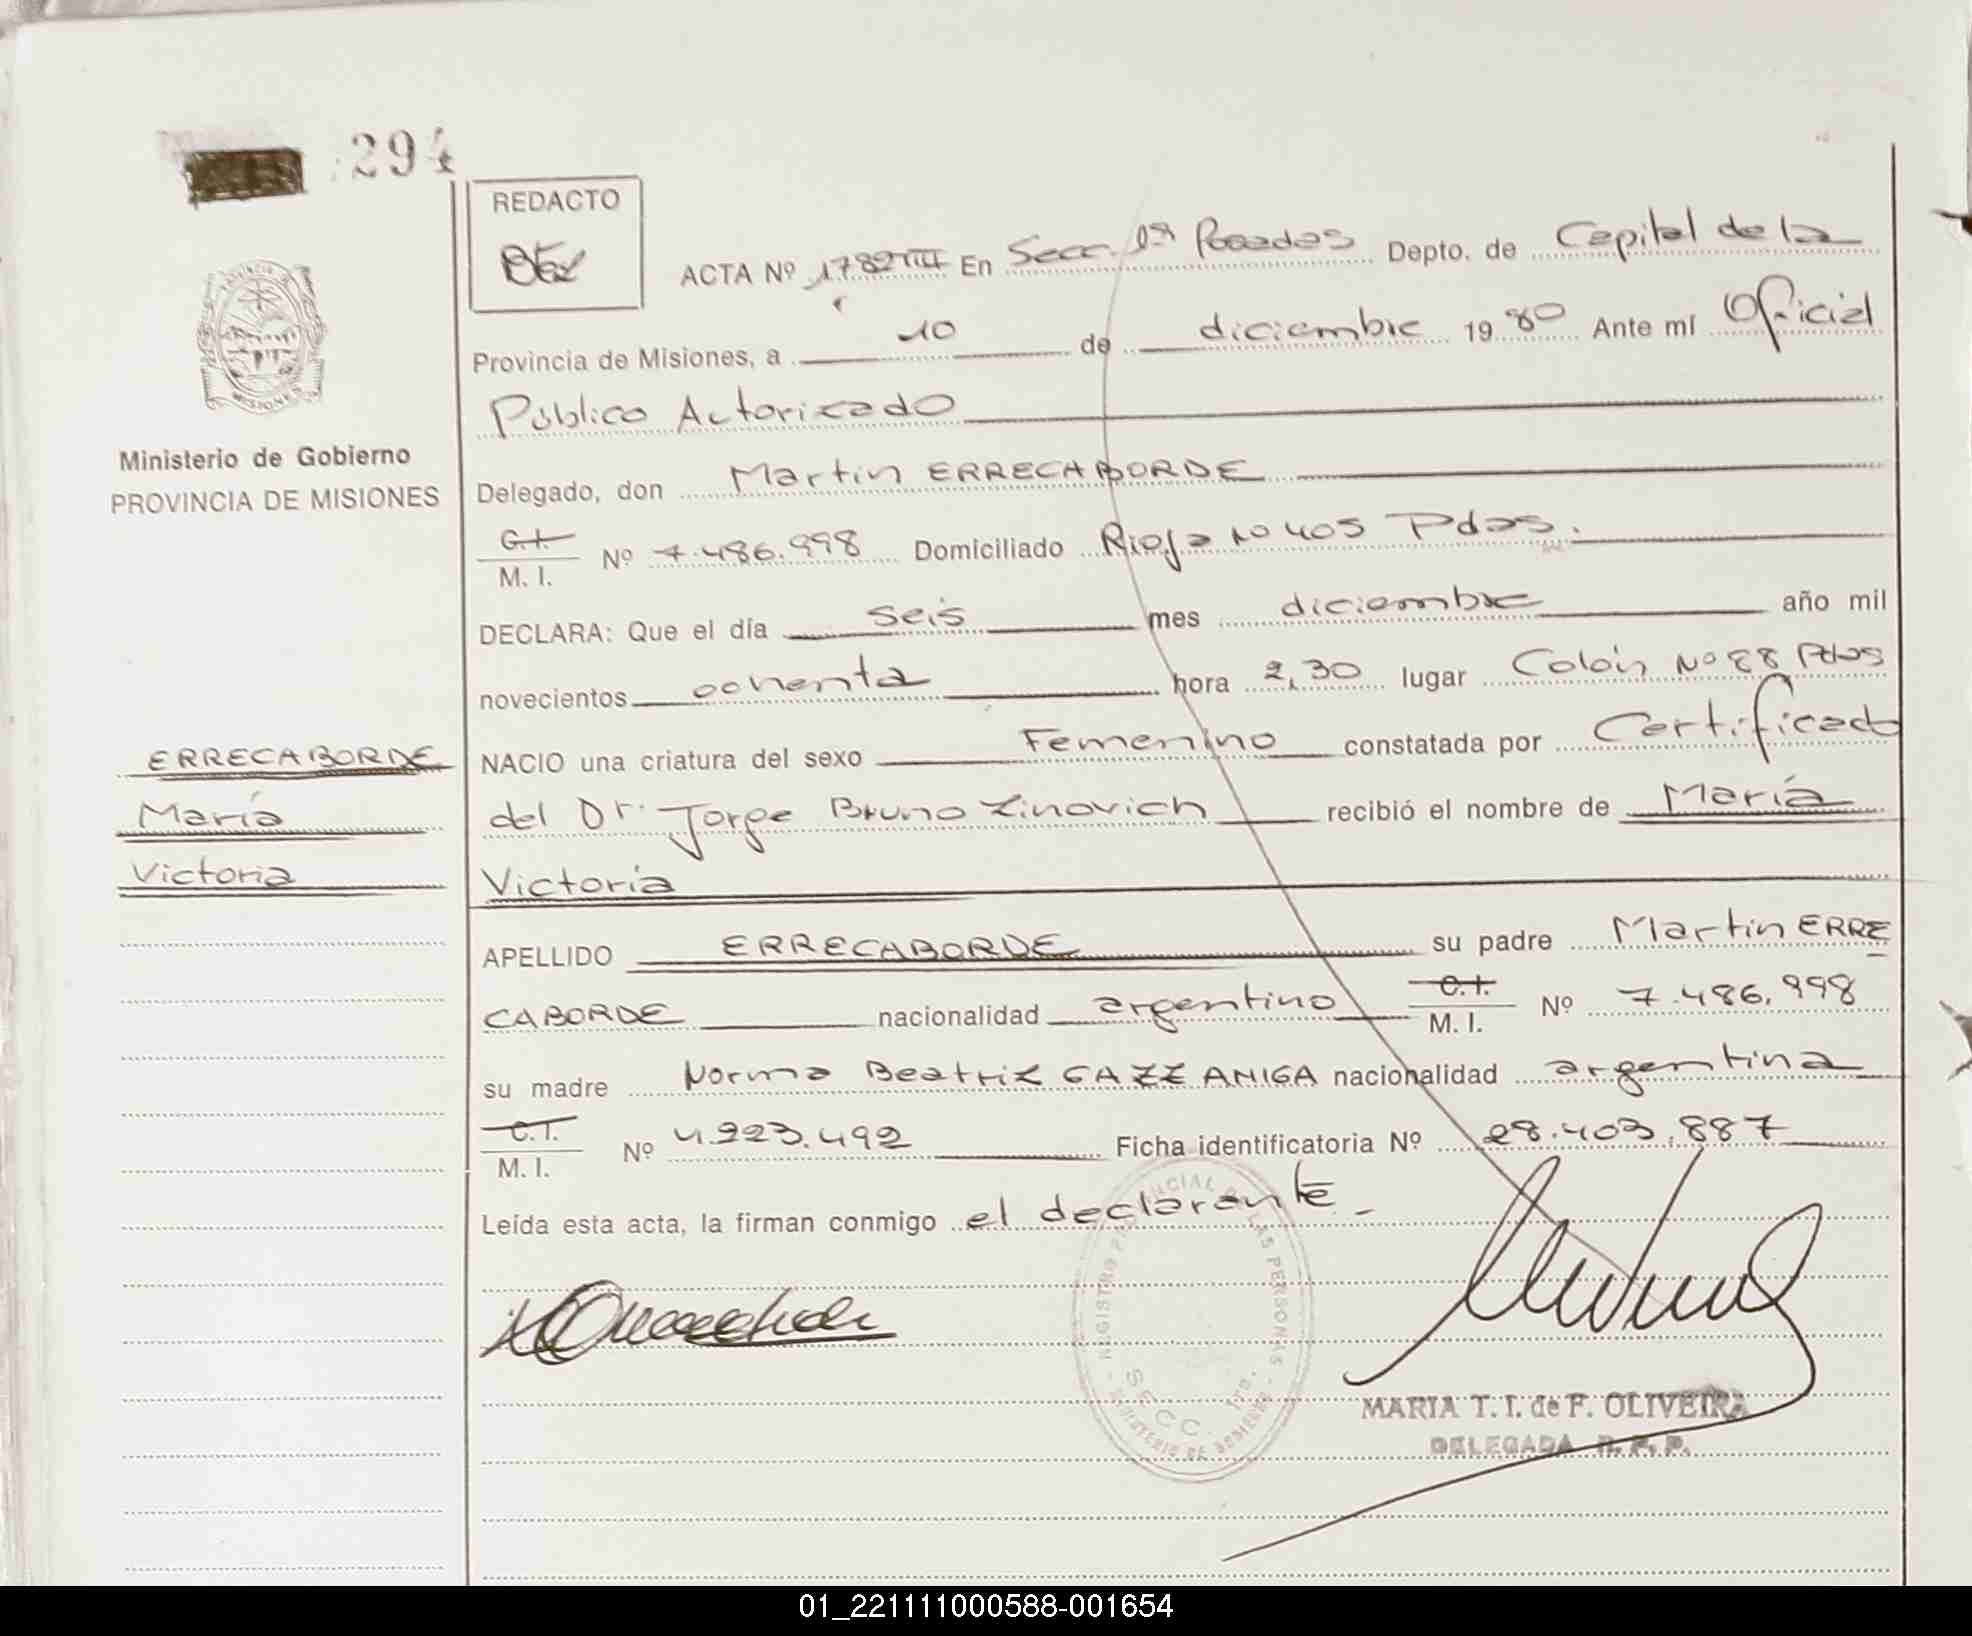 294
REDACTO
ACTA Nº 1782 III En Secc. 1ª Posadas Depto. de Capital de la
Provincia de Misiones, a 10 de diciembre 1980 Ante mí Oficial
Público Autorizado
Ministerio de Gobierno
PROVINCIA DE MISIONES
Delegado, don Martin ERRECABORDE
C.I.
M. I. Nº 7.486.998 Domiciliado Rioja Nº 405 Pdas.
DECLARA: Que el día seis mes diciembre año mil
novecientos ochenta hora 2,30 lugar Colón Nº 88 Pdas
NACIO una criatura del sexo Femenino constatada por Certificado
del Dr. Jorge Bruno Zinovich recibió el nombre de María
Victoria
ERRECABORDE
María
Victoria
APELLIDO ERRECABORDE su padre Martin ERRE
CABORDE nacionalidad argentino C.I.
M. I. Nº 7.486.998
su madre Norma Beatriz GAZZANIGA nacionalidad argentina
C.I.
M. I. Nº 4.223.492 Ficha identificatoria Nº 28.403.887
Leída esta acta, la firman conmigo el declarante
MARIA T. I. de F. OLIVEIRA
DELEGADA R. P. P.
01_221111000588-001654